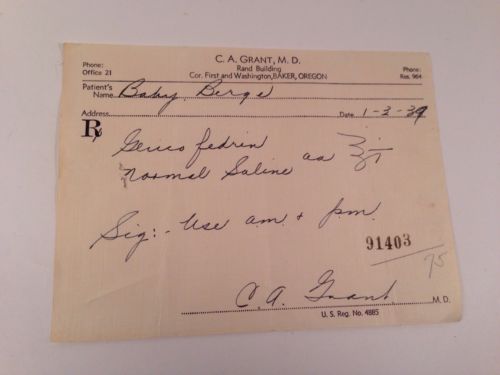 C. A. GRANT, M. D.
Rand Building
Cor. First and Washington, BAKER, OREGON
Phone:
Office 21
Phone:
Res. 964
Patient's
Name Baby Berge
Address Date 1-3-39
℞
Gluco fedrin
Normal Saline aa
Sig:- Use am + pm.
91403
75
C. A. Grant M. D.
U. S. Reg. No. 4885